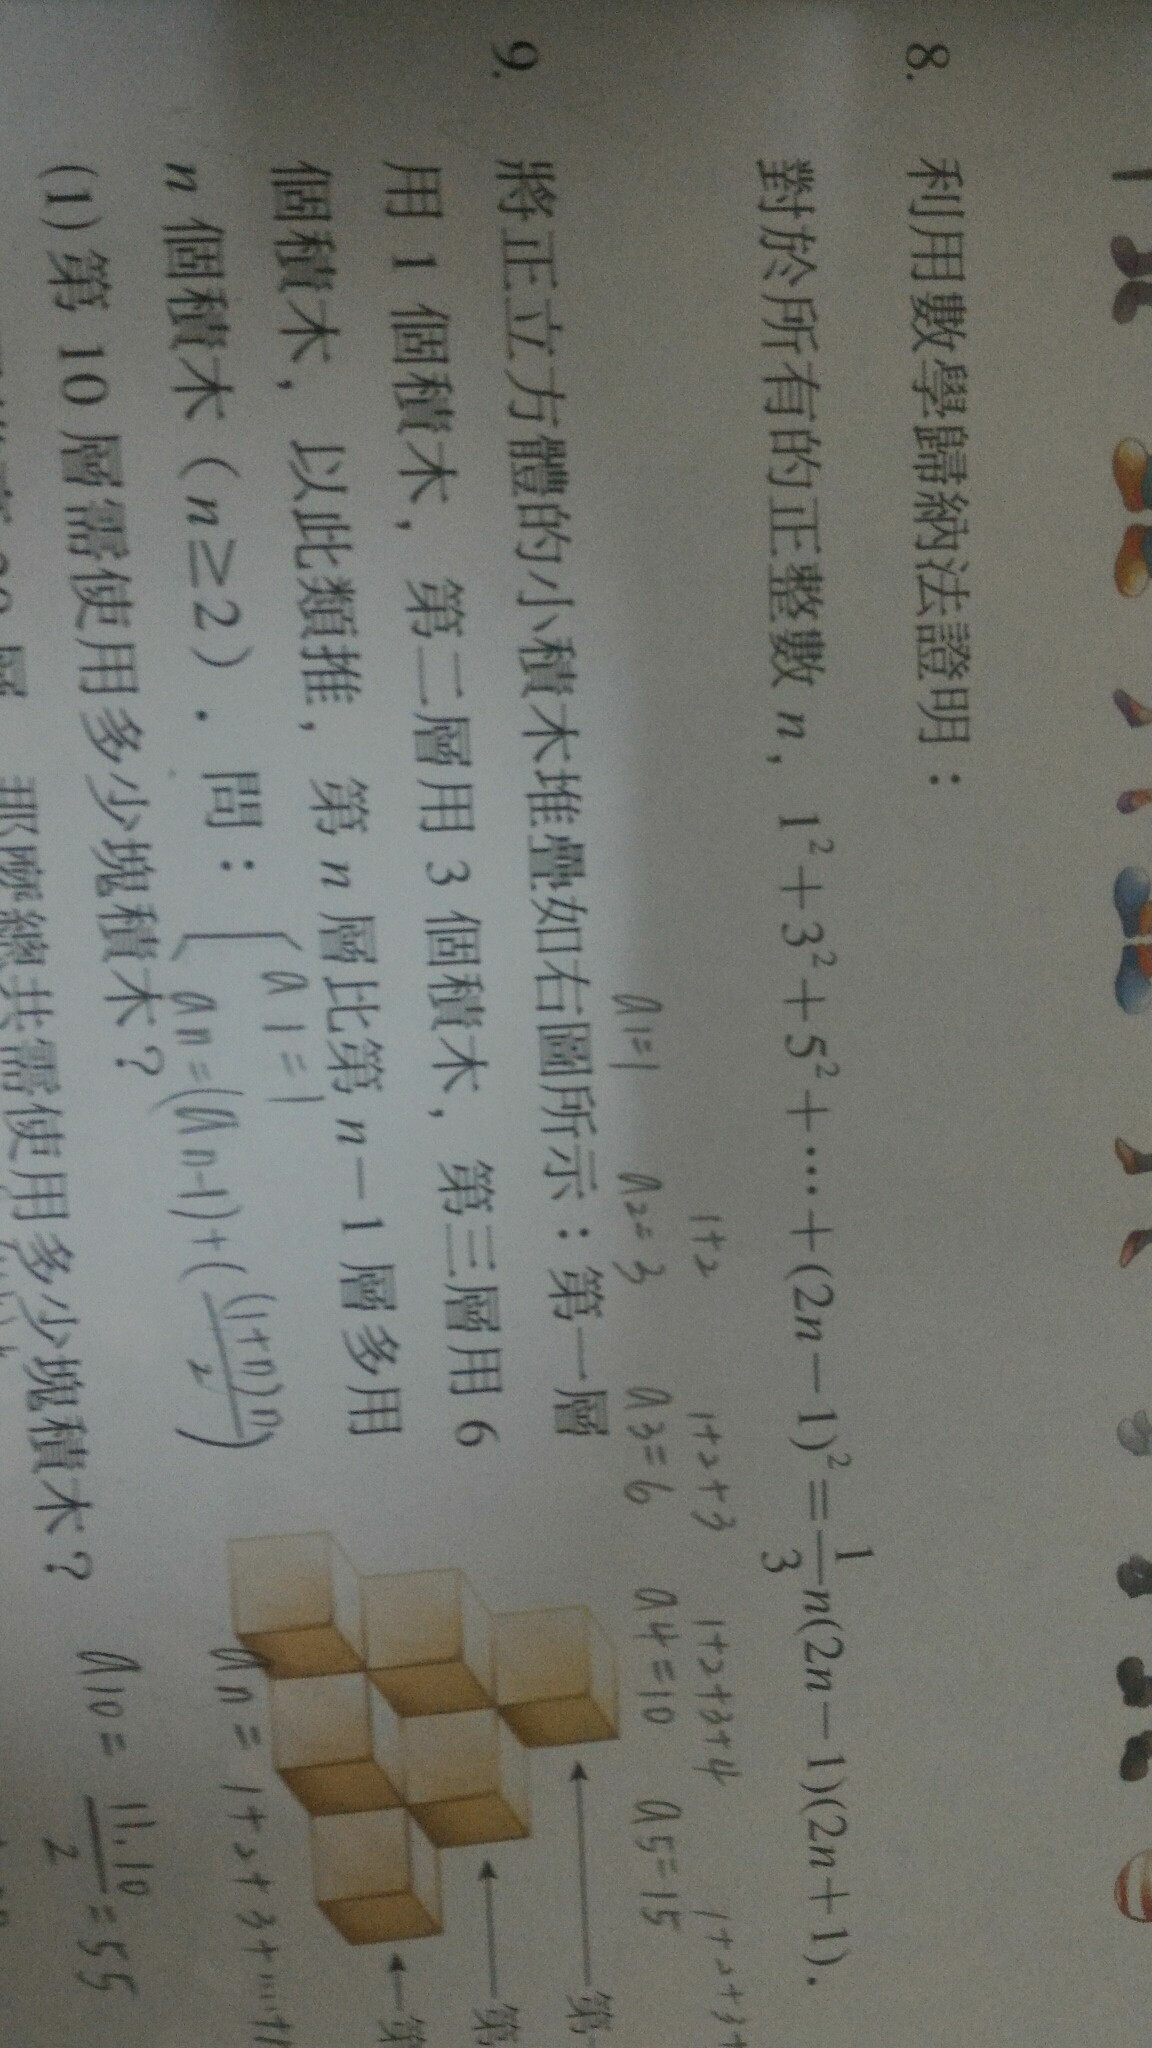 8. 利用數學歸納法證明：
對於所有的正整數 n，1²+3²+5²+…+(2n−1)²=1/3 n(2n−1)(2n+1).
1+2 1+2+3 1+2+3+4 1+2+3+
a1=1 a2=3 a3=6 a4=10 a5=15
9. 將正立方體的小積木堆疊如右圖所示：第一層
用 1 個積木，第二層用 3 個積木，第三層用 6
個積木，以此類推，第 n 層比第 n−1 層多用
n 個積木（n≥2）．問：
a1=1
an=(an-1)+((1+n)n/2)
第
第
第
an=1+2+3+
(1) 第 10 層需使用多少塊積木？
a10=11.10/2=55
層 那麼總共需使用多少塊積木？